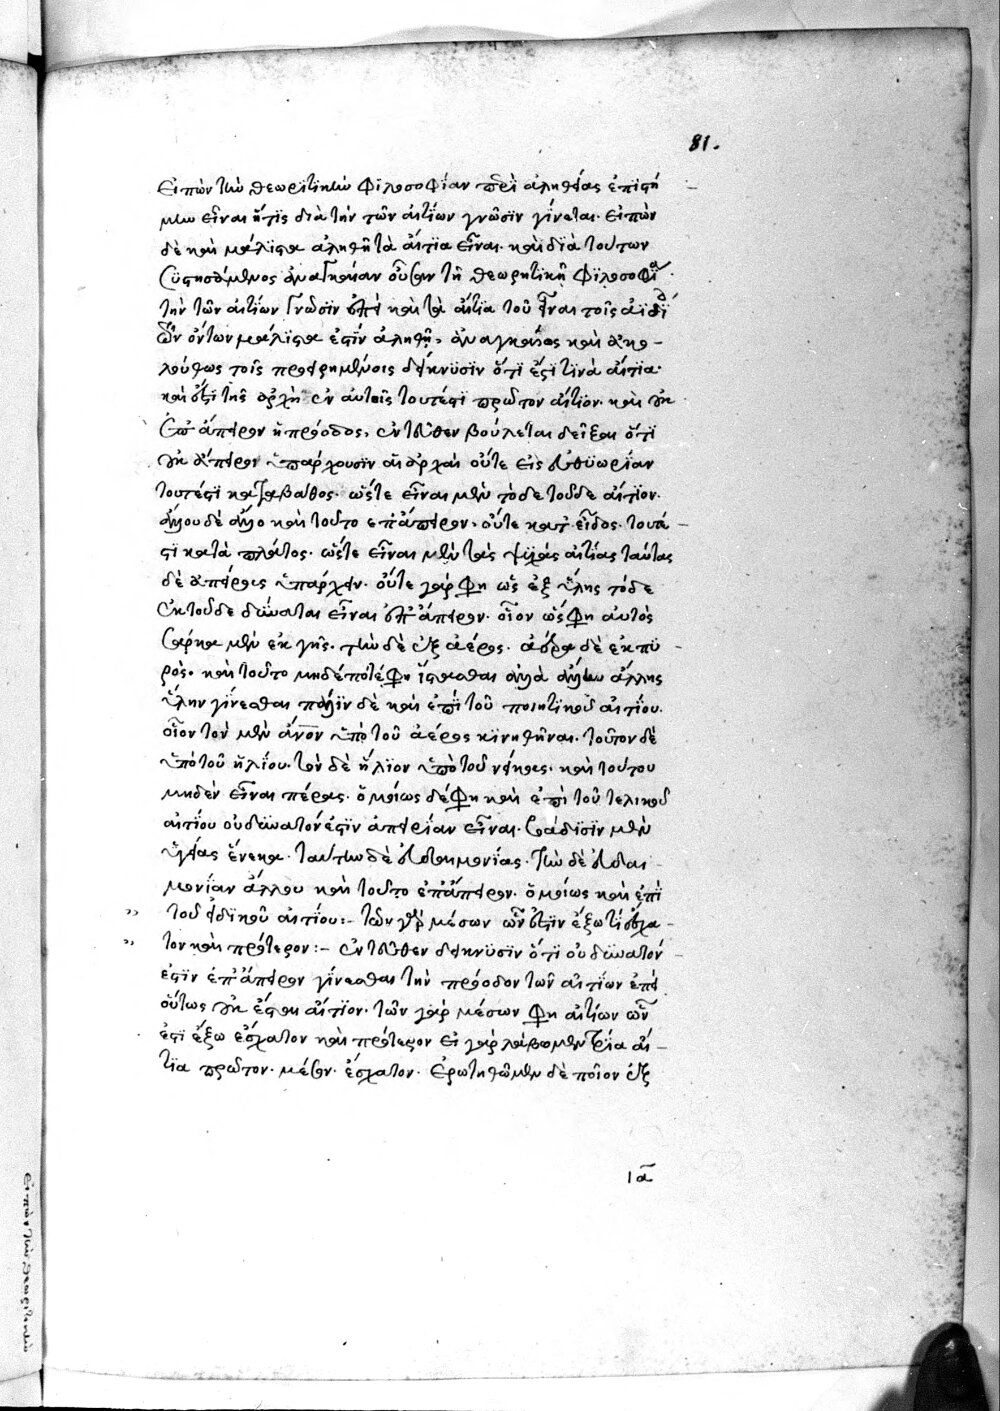 81.
εἰπὼν τὴν θεωριτικὴν φϊλοσοφίαν περὶ ἀληθείας ἐπιστή
μην εἶναι ἥτις διὰ τὴν τῶν αἰτίων γνῶσϊν γίνεται. εἰπὼν
δὲ καὶ μάλϊστα ἀληθῆ τὰ αἴτϊα εἶναι. καὶ διὰ τούτων
συστησάμενος ἀναγκαίαν οὖσαν τῇ θεωρητικῇ φϊλοσοφίᾳ
τὴν τῶν αἰτίων γνῶσϊν ἐπεὶ καὶ τὰ αἴτϊα τοῦ εἶναι τοῖς ἀϊδί
ὧν ὄντων μάλϊστα ἐστὶν ἀληθῆ, ἀναγκαίως καὶ ἀκο
λούθως τοῖς προειρημένοις δείκνυσϊν ὅτϊ ἐστὶ τϊνὰ αἴτϊα.
καὶ ὅτι τὶς ἀρχὴ ἐν αὐτοῖς τουτέστι πρῶτον αἴτϊον. καὶ οὐκ
ἐπ' ἄπειρον ἡ πρόοδος, ἐντεῦθεν βούλεται δεῖξαι ὅτϊ
οὐκ ἄπειροι ὑπάρχουσϊν αἱ ἀρχαὶ οὔτε εἰς εὐθϋωρίαν
τουτέστι κατὰ βάθος. ὥστε εἶναι μὲν τόδε τοῦδε αἴτϊον.
ἄλλου δὲ ἄλλο καὶ τοῦτο ἐπ' ἄπειρον. οὔτε κατ' εἶδος. τουτέ
στι κατὰ πλάτος. ὥστε εἶναι μὲν τὰς ὑλϊκὰς αἰτίας ταύτας
δὲ ἀπείρους ὑπάρχειν. οὔτε γάρ φη ὡς ἐξ ὕλης τόδε
ἐκ τοῦδε δύναται εἶναι ἐπ' ἄπειρον. οἷον ὥς φη αὐτὸς
σάρκα μὲν ἐκ γῆς. γῆν δὲ ἐξ ἀέρος. ἀέρα δὲ ἐκ πϋ
ρός. καὶ τοῦτο μηδέποτέ φη ἵστασθαι ἀλλὰ ἄλλην ἄλλης
ὕλην γίνεσθαι πάλϊν δὲ καὶ ἐπὶ τοῦ ποιητικοῦ αἰτίου.
οἷον τὸν μὲν ἄνον ὑπὸ τοῦ ἀέρος κϊνηθῆναι. τοῦτον δὲ
ὑπὸ τοῦ ἡλίου. τὸν δὲ ἥλϊον ὑπὸ τοῦ νείκους. καὶ τούτου
μηδὲν εἶναι πέρας. ὁμοίως δέ φη καὶ ἐπὶ τοῦ τελικοῦ
αἰτίου οὐ δυνατόν ἐστϊν ἀπειρίαν εἶναι. βάδισϊν μὲν
ὑγείας ἕνεκα. ταύτην δὲ εὐδαιμονίας. τὴν δὲ εὐδαι
μονίαν ἄλλου καὶ τοῦτο ἐπ' ἄπειρον. ὁμοίως καὶ ἐπὶ
τοῦ εἰδϊκοῦ αἰτίου:- τῶν γὰρ μέσων ὧν ἐστιν ἔξω τί ἔσχα
τον καὶ πρότερον:- ἐντεῦθεν δείκνυσϊν ὅτϊ οὐ δυνατόν
ἐστϊν ἐπ' ἄπειρον γίνεσθαι τὴν πρόοδον τῶν αἰτίων ἐπεὶ
οὕτως οὐκ ἔσται αἴτϊον. τῶν γὰρ μέσων φη αἰτίων ὧν
ἐστϊ ἔξω ἔσχατον καὶ πρότερον εἰ γὰρ λάβωμεν τρία αἴ
τϊα πρῶτον. μέσον. ἔσχατον. ἐρωτηθῶμεν δὲ ποῖον ἐξ
ια
εἰπὼν τὴν θεωριτικὴν